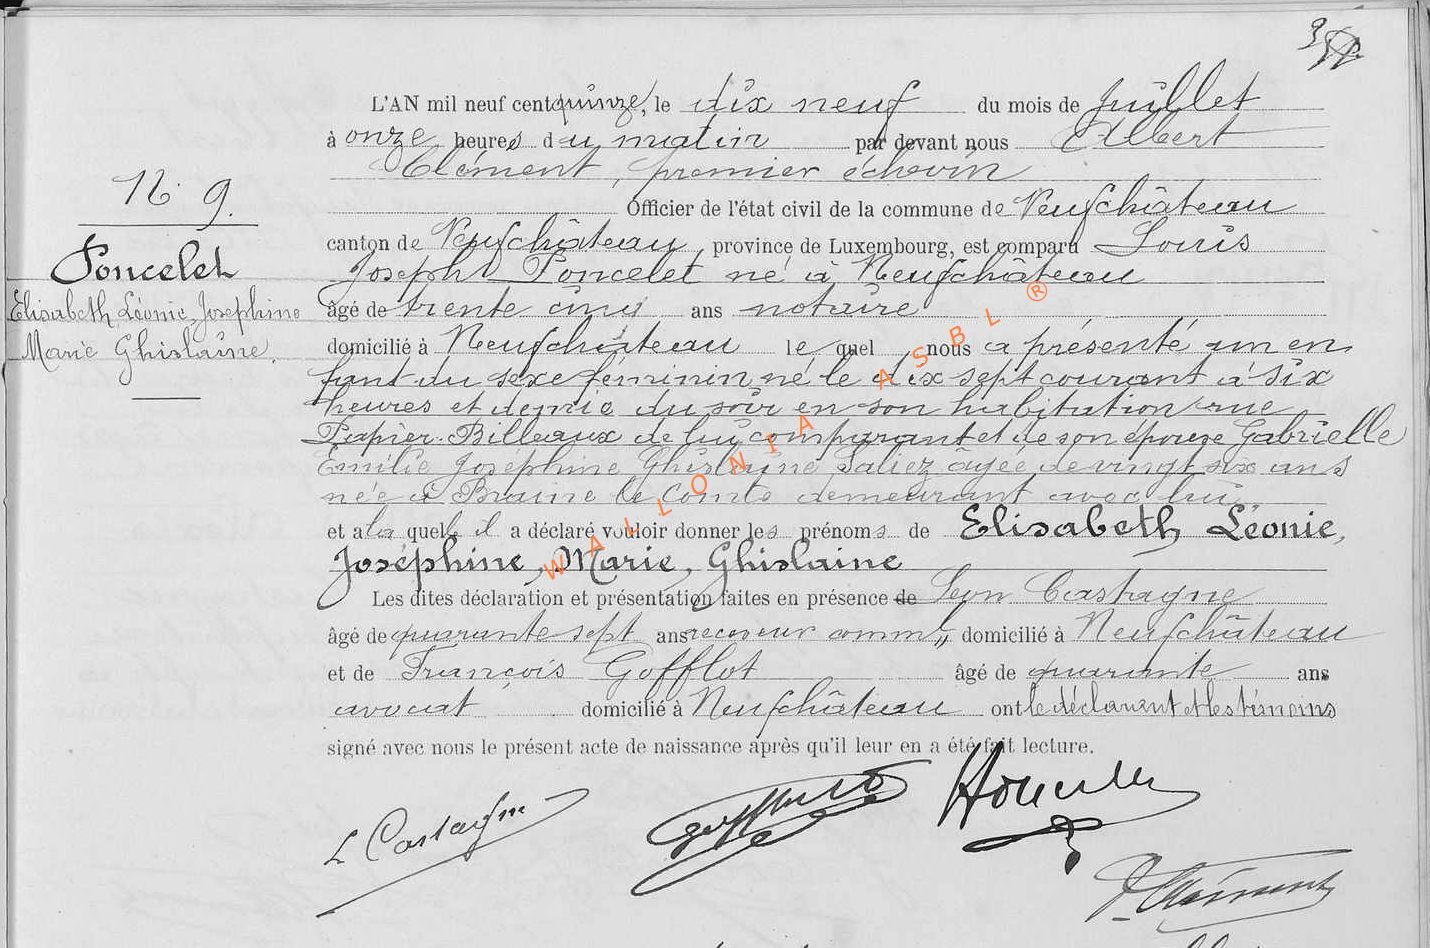 L'AN mil neuf cent quinze, le dix neuf du mois de juillet
à onze heures du matin par devant nous Albert
Clément, premier échevin
Officier de l'état civil de la commune de Neufchâteau
N° 9.
canton de Neufchâteau, province de Luxembourg, est comparu Louis
Poncelet
Joseph Poncelet né à Neufchâteau
Elisabeth Léonie Josephine
âgé de trente cinq ans notaire
Marie Ghislaine.
domicilié à Neufchâteau lequel nous a présenté un en
fant du sexe féminin né le dix sept courant à six
heures et demie du soir en son habitation rue
Papier-Billeaux de lui comparant et de son épouse Gabrielle
Emilie Josephine Ghislaine Saliez âgée de vingt six ans
née à Braine le Comte demeurant avec lui
et a la quelle il a déclaré vouloir donner les prénoms de Elisabeth, Léonie,
Joséphine, Marie, Ghislaine
Les dites déclaration et présentation faites en présence de Léon Castagne
âgé de quarante sept ans receveur comml, domicilié à Neufchâteau
et de François Gofflot âgé de quarante ans
avocat domicilié à Neufchâteau ont le déclarant et les témoins
signé avec nous le présent acte de naissance après qu'il leur en a été fait lecture.
L Castagne
WALLONIA ASBL ®